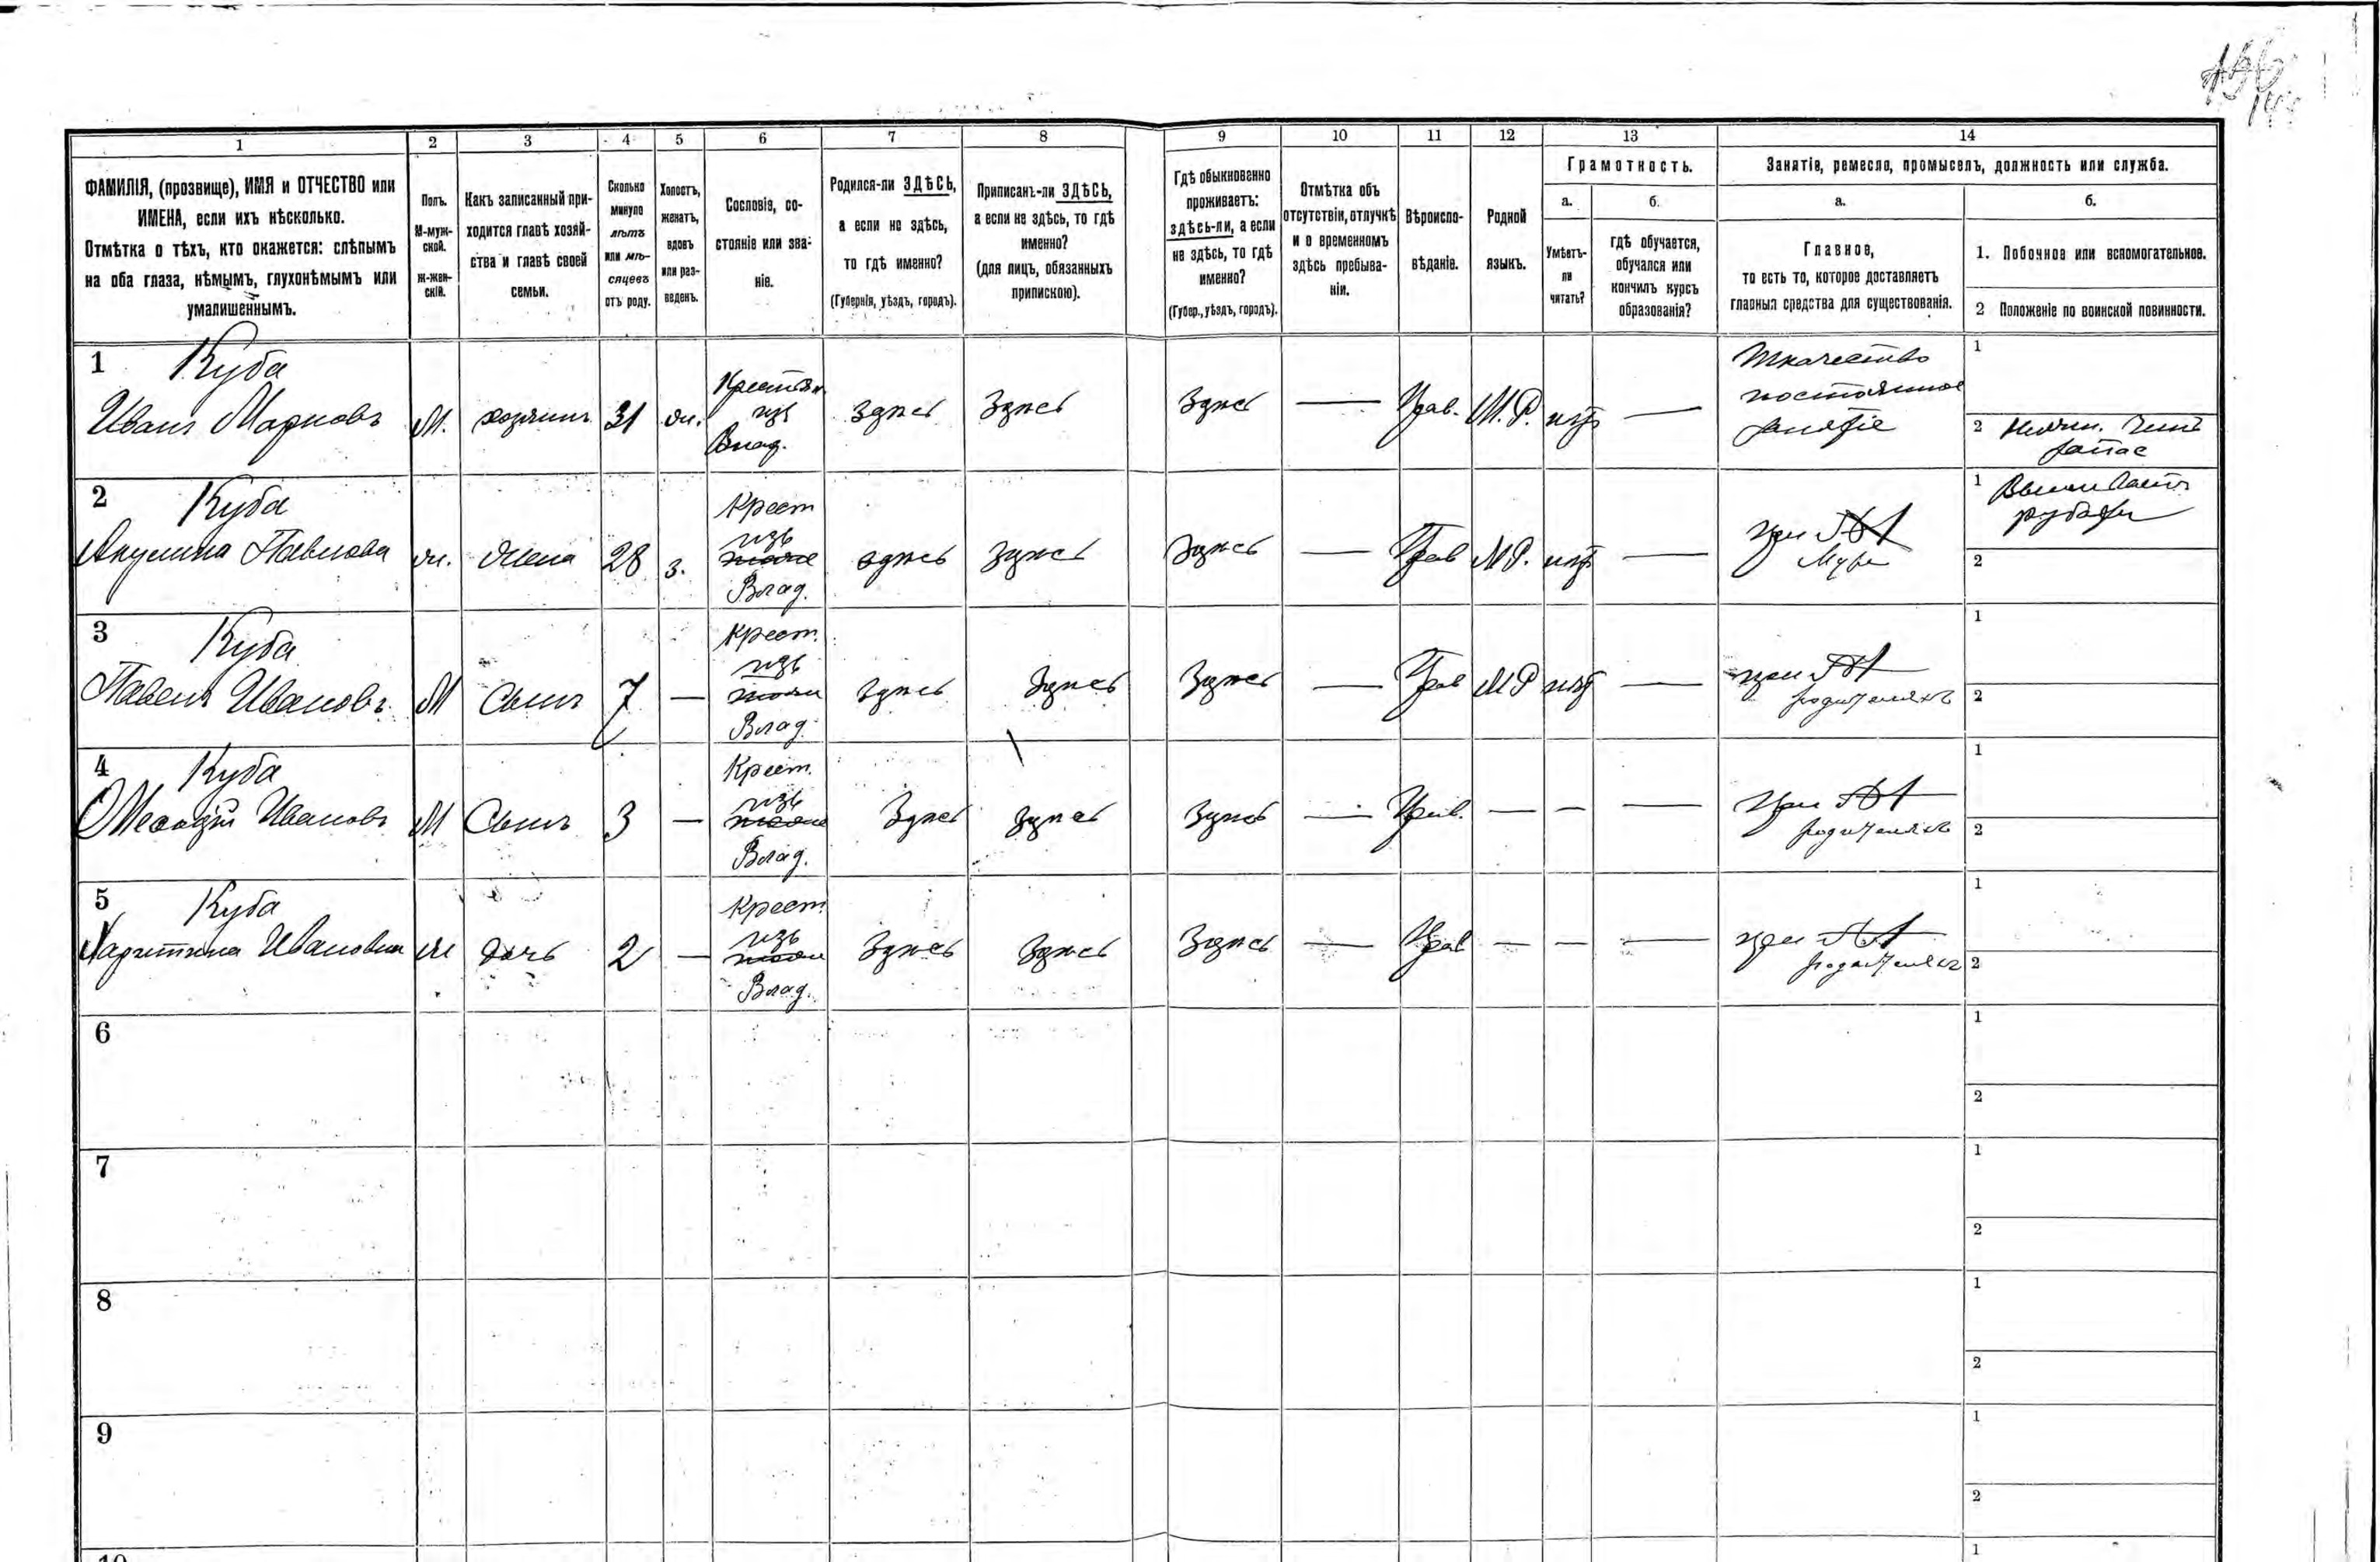 1 2 3 4 5 6 7 8 9 10 11 12 13 14
ФАМИЛІЯ, (прозвище), ИМЯ и ОТЧЕСТВО или
ИМЕНА, если ихъ нѣсколько.
Отмѣтка о тѣхъ, кто окажется: слѣпымъ
на оба глаза, нѣмымъ, глухонѣмымъ или
умалишённымъ.
Полъ.
М-муж-
ской.
Ж-жен-
скій.
Какъ записанный при-
ходится главѣ хозяй-
ства и главѣ своей
семьи.
Сколько
минуло
лѣтъ
или мѣ-
сяцевъ
отъ роду.
Холостъ,
женатъ,
вдовъ
или раз-
веденъ.
Сословіе, со-
стояніе или зва-
ніе.
Родился-ли ЗДѢСЬ,
а если не здѣсь,
то гдѣ именно?
(Губернія, уѣздъ, городъ).
Приписанъ-ли ЗДѢСЬ,
а если не здѣсь, то гдѣ
именно?
(для лицъ, обязанныхъ
припискою).
Гдѣ обыкновенно
проживаетъ:
здѣсь-ли, а если
не здѣсь, то гдѣ
именно?
(Губер., уѣздъ, городъ).
Отмѣтка объ
отсутствіи, отлучкѣ
и о временномъ
здѣсь пребыва-
ніи.
Вѣроиспо-
вѣданіе.
Родной
языкъ.
Грамотность.
а.
Умѣетъ-
ли
читать?
б.
гдѣ обучается,
обучался или
кончилъ курсъ
образованія?
Занятіе, ремесло, промыселъ, должность или служба.
а.
Главное,
то есть то, которое доставляетъ
главныя средства для существованія.
б.
1. Побочное или вспомогательное.
2 Положеніе по воинской повинности.
1 Куба
Иванъ Марковъ М. хозяинъ 31 ж. Крестьян. изъ Влад. Здѣсь Здѣсь Здѣсь — Прав. М.Р. нѣтъ —
Ткачество
постоянное
занятіе
1
2 Нижн. чинъ
запас
2 Куба
Акулина Павлова ж. жена 28 з. Крест изъ Влад. здѣсь Здѣсь Здѣсь — Прав М.Р. нѣтъ — при
муже
1 Вышиваетъ
рубахи
2
3 Куба
Павелъ Ивановъ М Сынъ 7 — Крест. изъ Влад. Здѣсь Здѣсь Здѣсь — Прав М Р нѣтъ — при
родителяхъ
1
2
4 Куба
Ивановъ М Сынъ 3 — Крест. изъ Влад. Здѣсь Здѣсь Здѣсь — Прав. — — — При
родителяхъ
1
2
5 Куба
Харитина Ивановна ж дочь 2 — Крест. изъ Влад. Здѣсь Здѣсь Здѣсь — Прав — — — при
родителяхъ
1
2
6 1
2
7 1
2
8 1
2
9 1
2
10 1